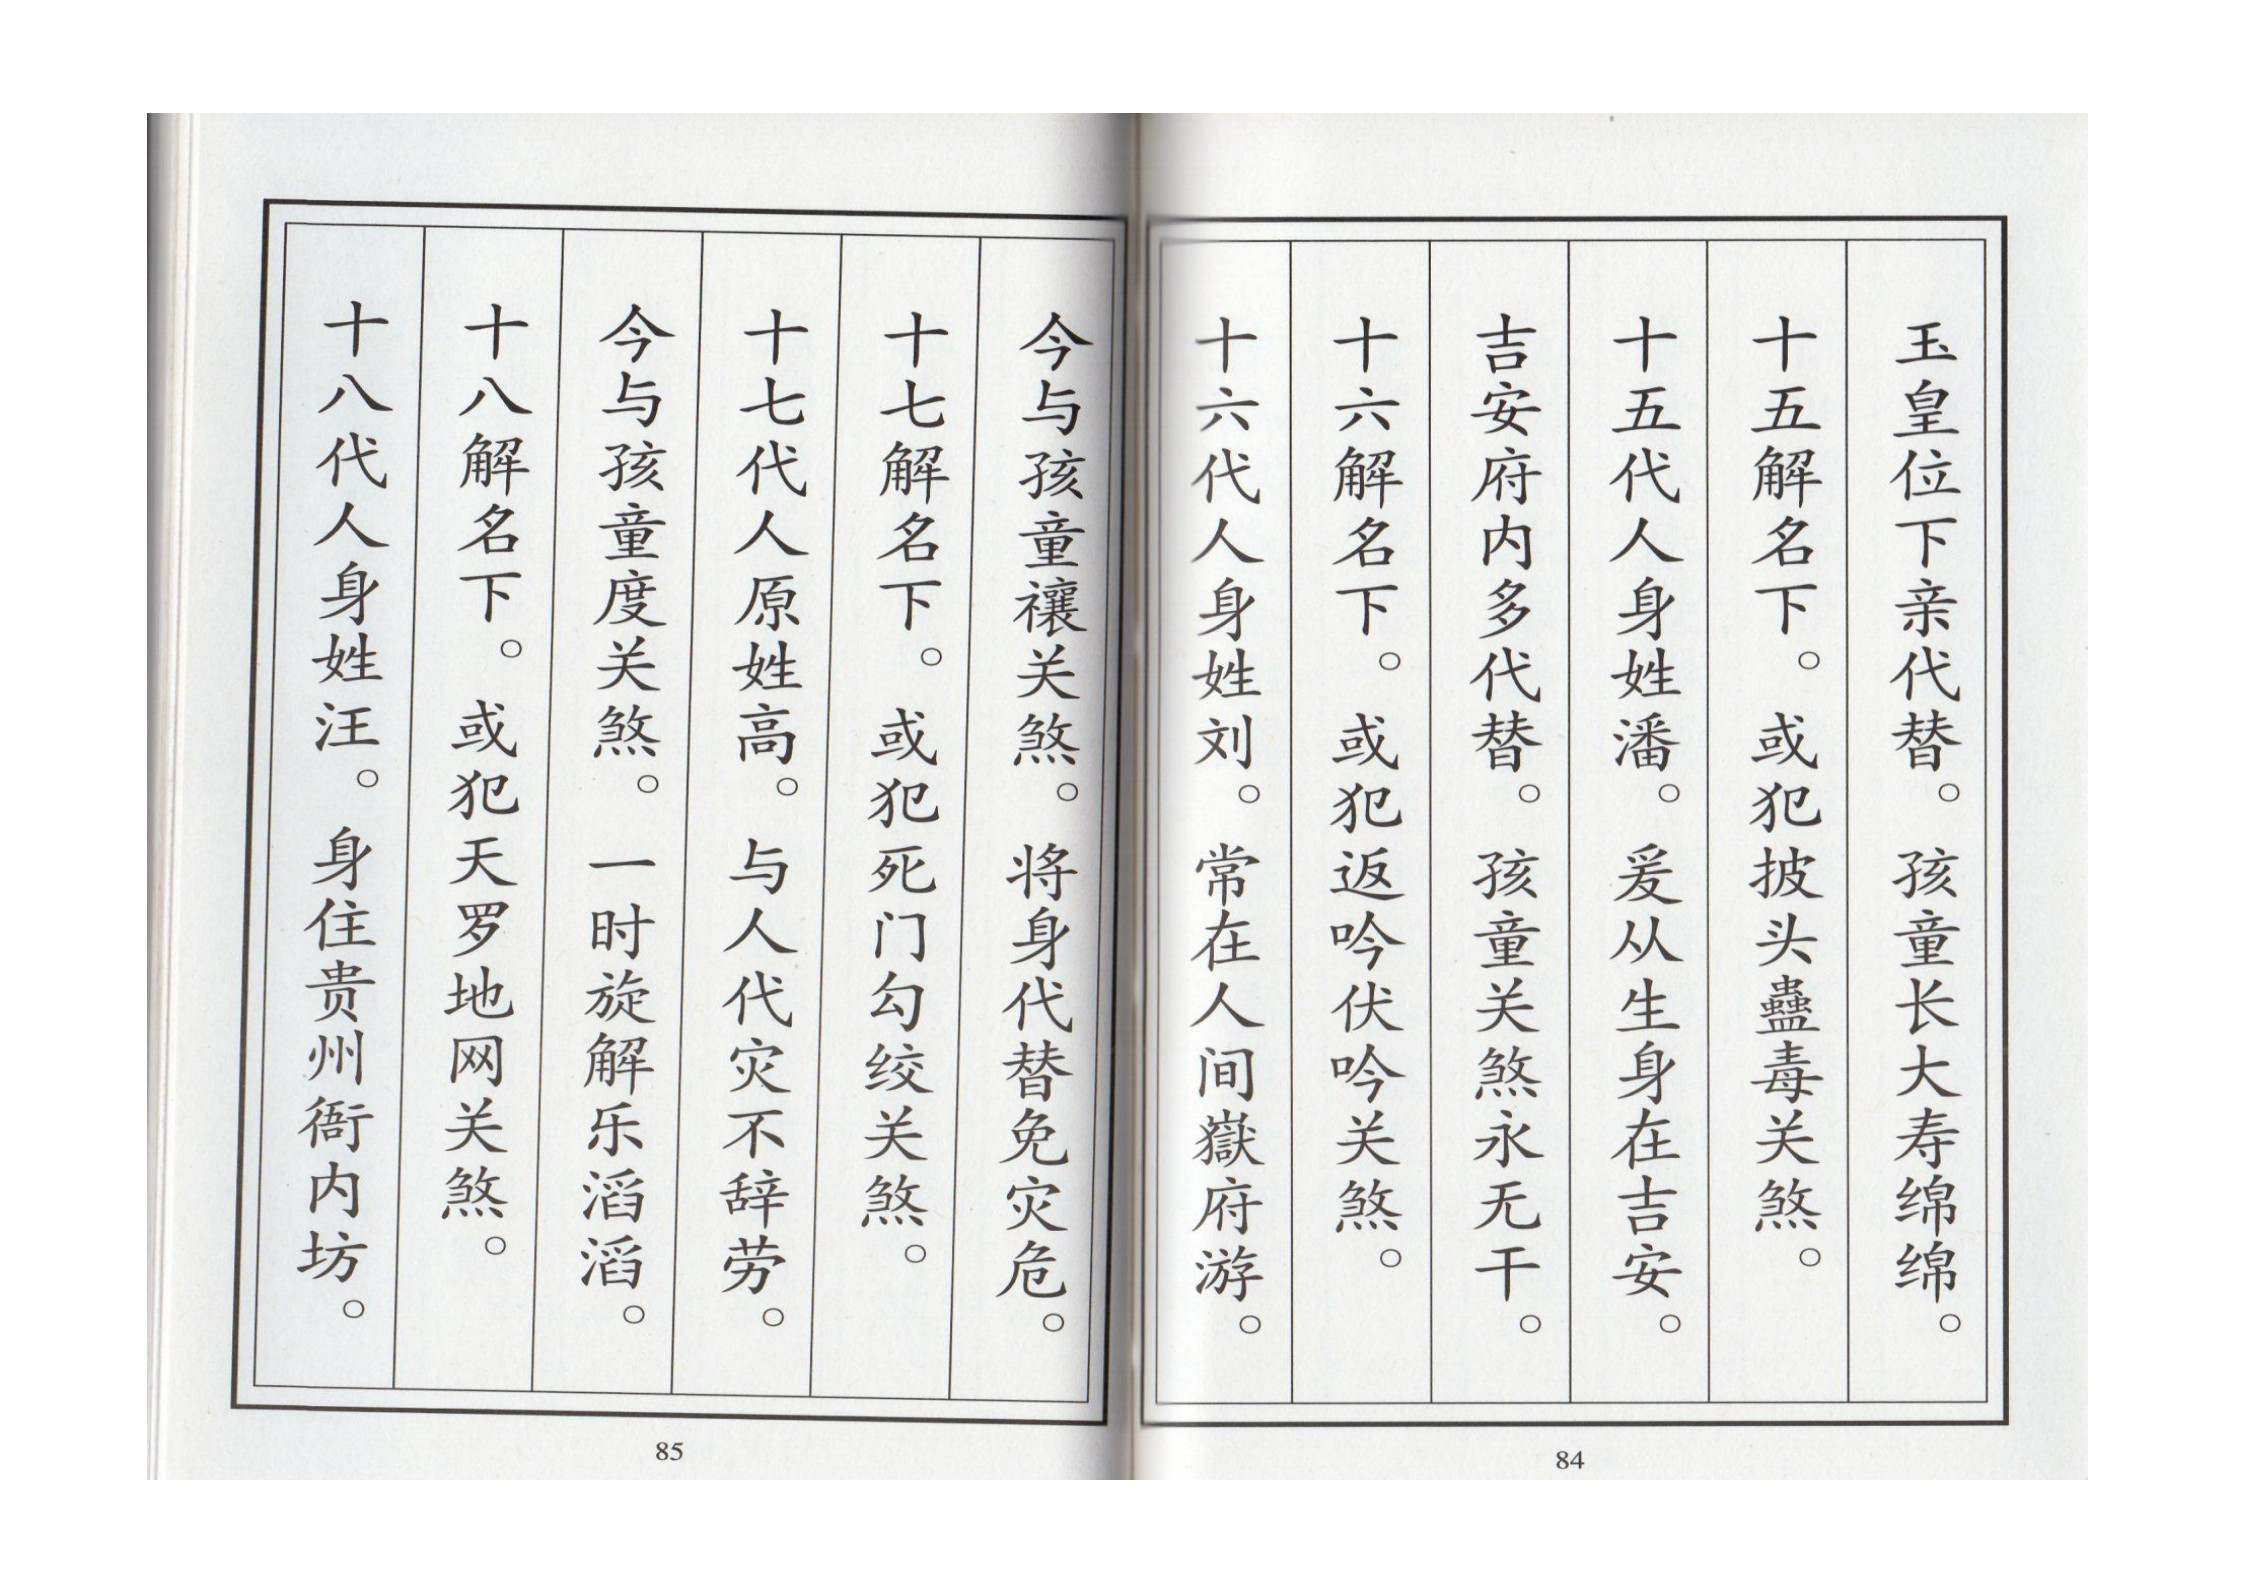 玉皇位下亲代替。孩童长大寿绵绵。
十五解名下。或犯披头蠱毒关煞。
十五代人身姓潘。爰从生身在吉安。
吉安府内多代替。孩童关煞永无干。
十六解名下。或犯返吟伏吟关煞。
十六代人身姓刘。常在人间嶽府游。
84
今与孩童禳关煞。将身代替免灾危。
十七解名下。或犯死门勾绞关煞。
十七代人原姓高。与人代灾不辞劳。
今与孩童度关煞。一时旋解乐滔滔。
十八解名下。或犯天罗地网关煞。
十八代人身姓汪。身住贵州衙内坊。
85